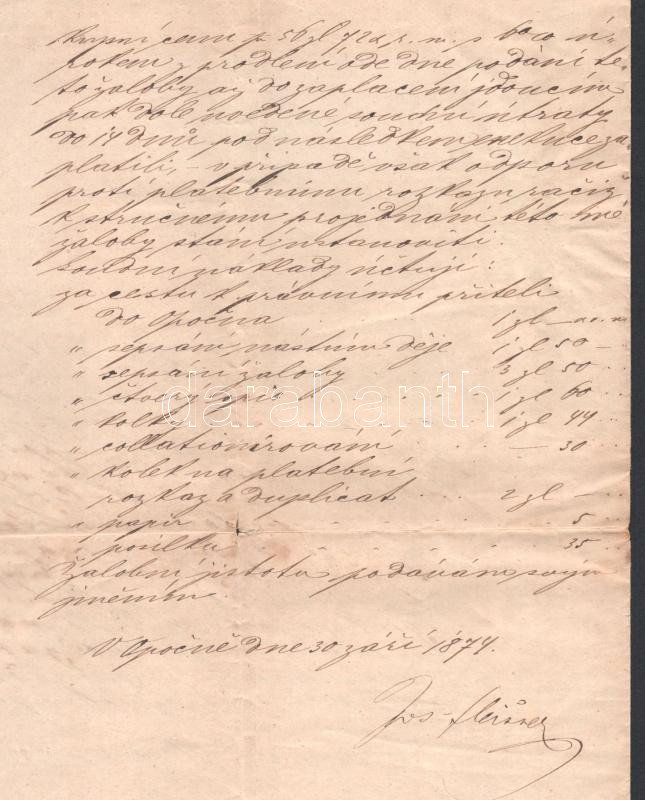 kupní cenu pr 56 zl 72 x r. m. s 6% ú-
rokem z prodlení ode dne podání té-
to žaloby až do zaplacení jdoucím
pak dole uvedené soudní útraty
do 14 dnů pod následkem exekuce za-
platili, – v případě však odporu
proti platebnímu rozkazu račiž
k stručnému projednání této mé
žaloby stání ustanoviti.
Soudní náklady účtuji:
za cestu k právnímu příteli
do Opočna 1 zl –
" sepsání nástinu děje 1 zl 50 –
" sepsání žaloby 3 zl 50 ..
" čtverý opis 1 zl 60 ..
" kolky 1 zl 44 ..
" collationirování – 30 ..
" kolek na platební
rozkaz a duplicat 2 zl – ..
" papír 5 ..
" posilku 35 ..
Žalobní jistotu podávám svým
jménem.
V Opočně dne 30 září 1874.
Jos.
darabanth